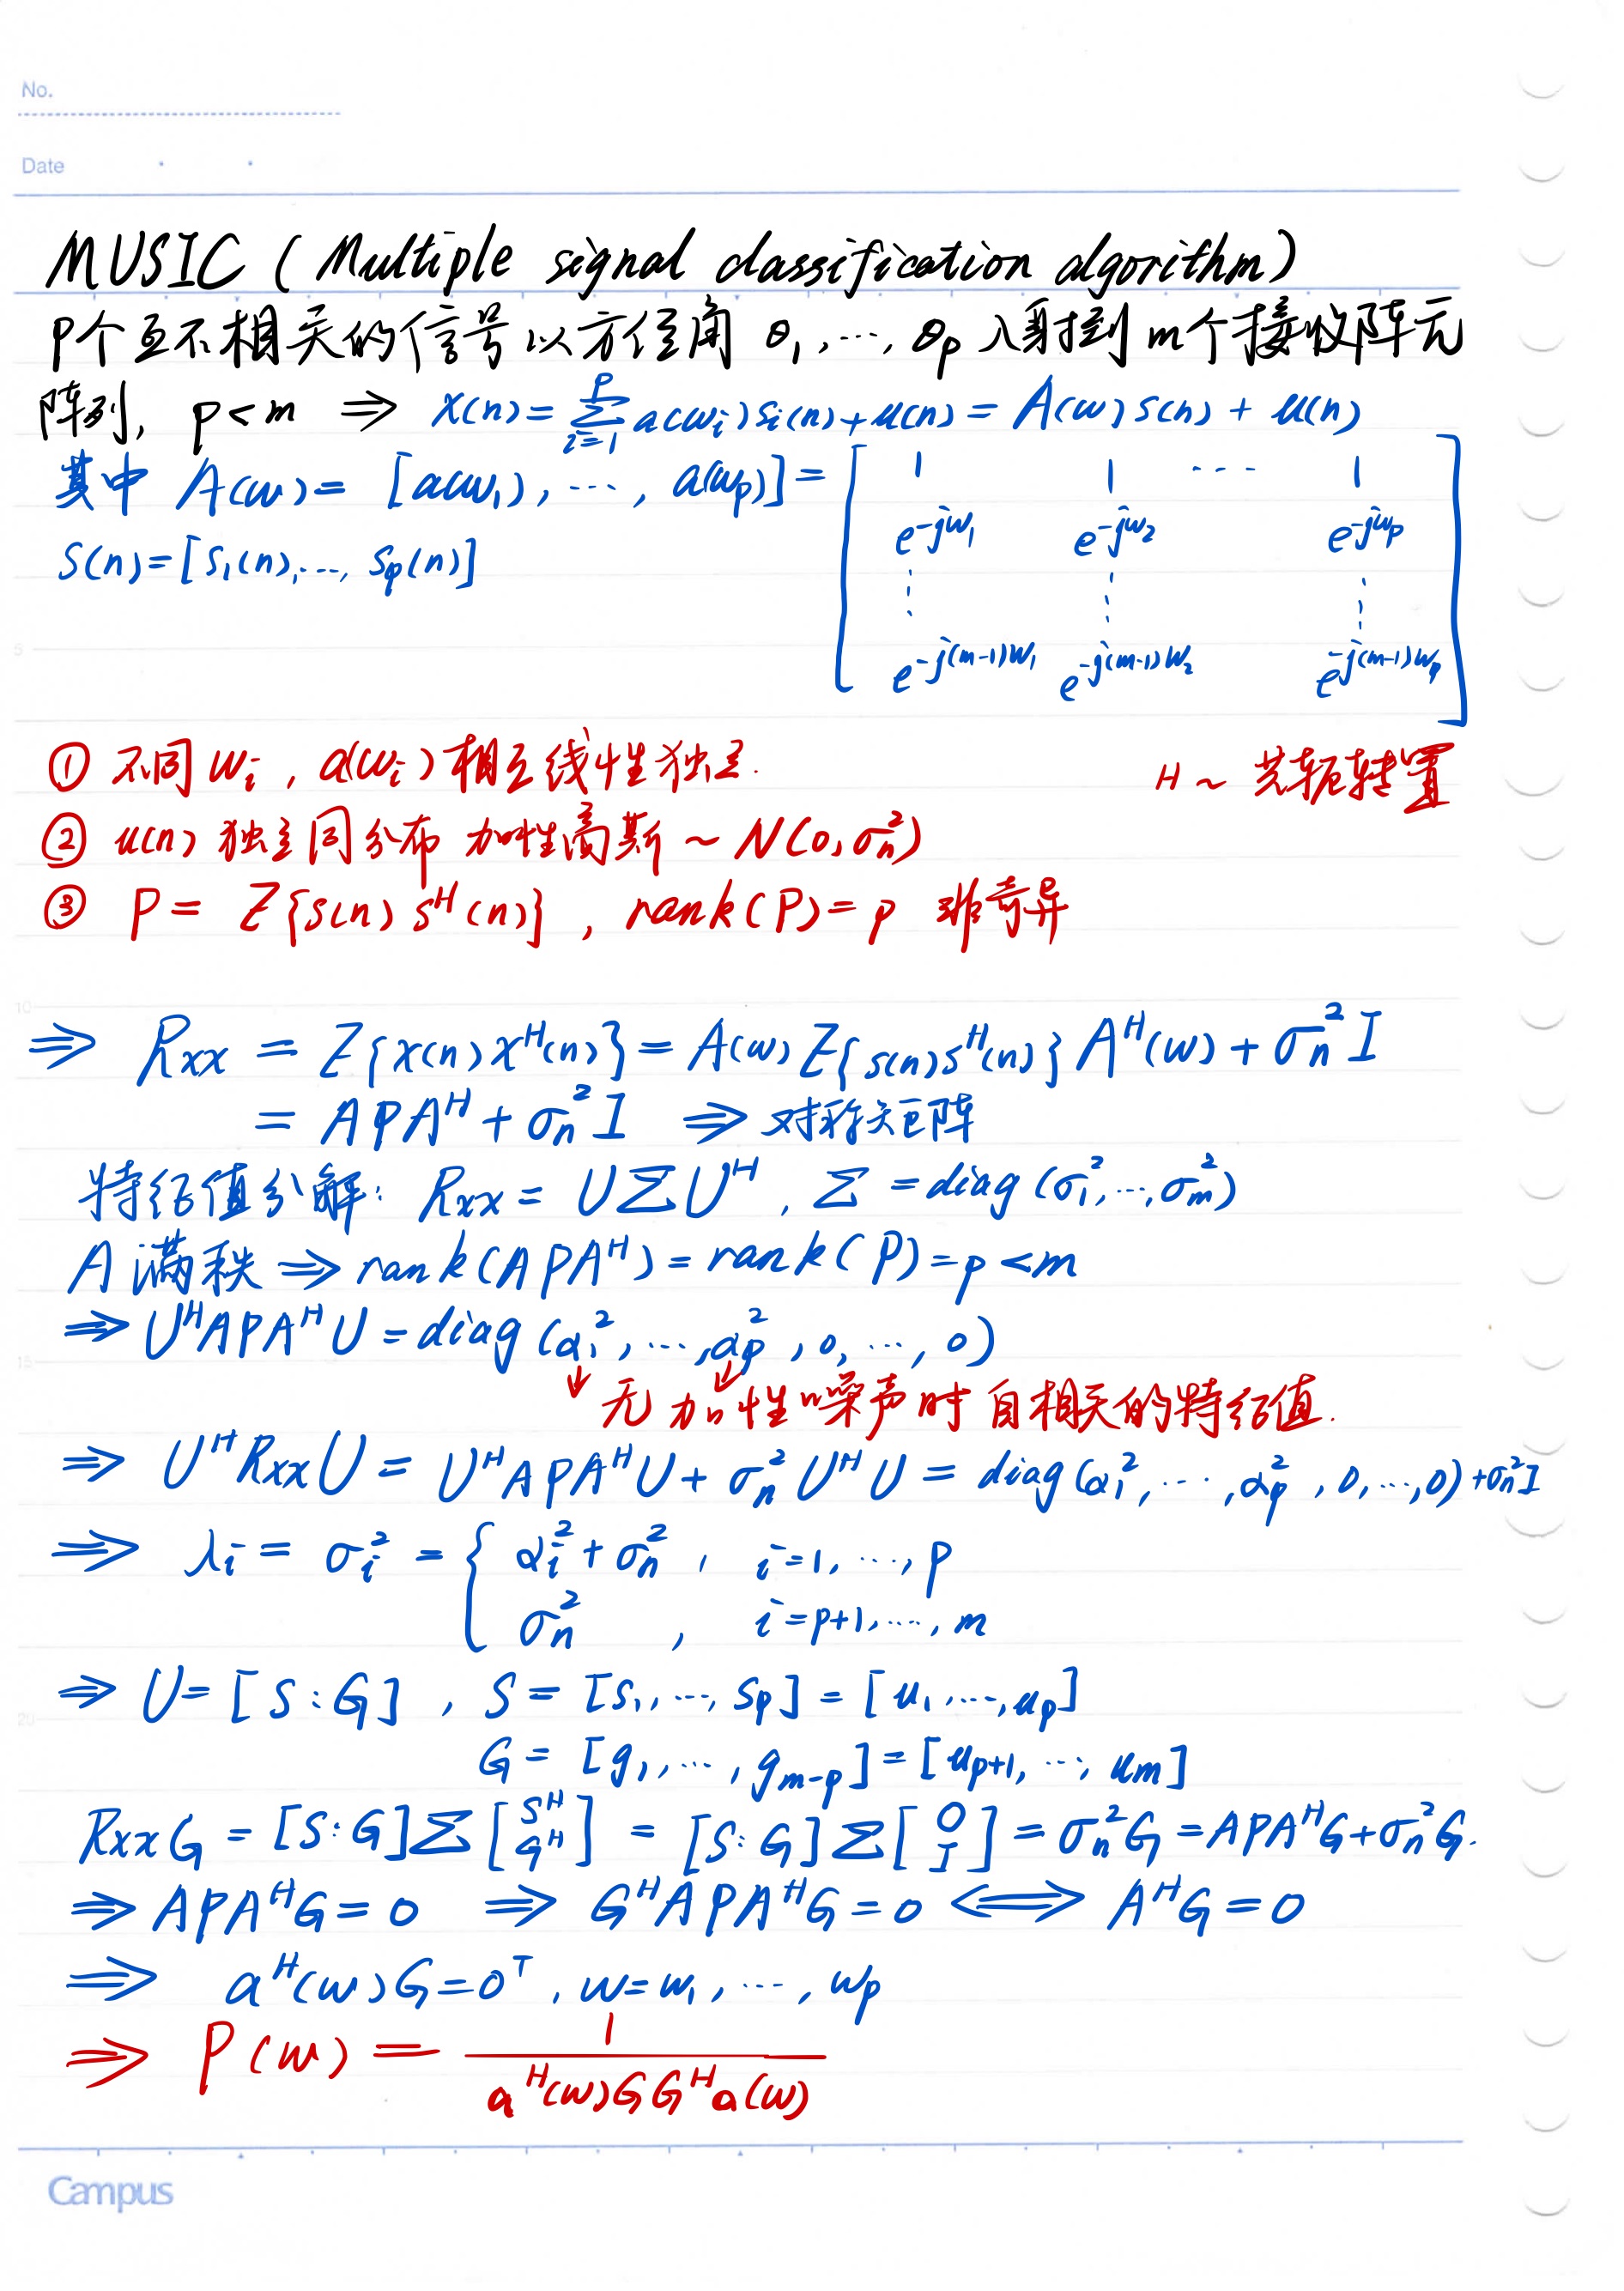 No.
Date
MUSIC (Multiple signal classification algorithm)
P个互不相关的信号以方位角 θ₁,…,θₚ 入射到m个接收阵元
阵列, p<m ⇒ x(n)=∑_{i=1}^{P} a(ωᵢ)sᵢ(n)+u(n)=A(ω)s(n)+u(n)
其中 A(ω)=[a(ω₁),…,a(ωₚ)]=[1 1 … 1
e^{-jω₁} e^{-jω₂} e^{-jωₚ}
⋮ ⋮ ⋮
e^{-j(m-1)ω₁} e^{-j(m-1)ω₂} e^{-j(m-1)ωₚ}]
S(n)=[s₁(n),…,sₚ(n)]
① 不同ωᵢ,a(ωᵢ)相互线性独立.
H~共轭转置
② u(n)独立同分布 加性高斯~N(0,σₙ²)
③ P=E{s(n)s^H(n)},rank(P)=p 非奇异
⇒ Rxx=E{x(n)x^H(n)}=A(ω)E{s(n)s^H(n)}A^H(ω)+σₙ²I
=APA^H+σₙ²I ⇒对称矩阵
特征值分解: Rxx=UΣU^H,Σ=diag(σ₁²,…,σₘ²)
A满秩⇒rank(APA^H)=rank(P)=p<m
⇒U^HAPA^HU=diag(α₁²,…,αₚ²,0,…,0)
↓ ↙ 无加性噪声时自相关的特征值.
⇒ U^HRxxU=U^HAPA^HU+σₙ²U^HU=diag(α₁²,…,αₚ²,0,…,0)+σₙ²I
⇒ λᵢ=σᵢ²={αᵢ²+σₙ², i=1,…,p
σₙ², i=p+1,…,m
⇒ U=[S⋮G],S=[s₁,…,sₚ]=[u₁,…,uₚ]
G=[g₁,…,g_{m-p}]=[u_{p+1},…,uₘ]
RxxG=[S⋮G]Σ[S^H G^H]=[S⋮G]Σ[O I]=σₙ²G=APA^HG+σₙ²G.
⇒APA^HG=0 ⇒ G^HAPA^HG=0 ⟺ A^HG=0
⇒ a^H(ω)G=0^T,ω=ω₁,…,ωₚ
⇒ P(ω)=1/(a^H(ω)GG^Ha(ω))
5
10
15
20
Campus